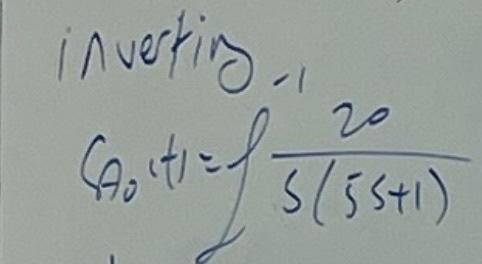 inverting
C_{A_0}(t) = ℒ^{-1} \frac{20}{s(5s+1)}